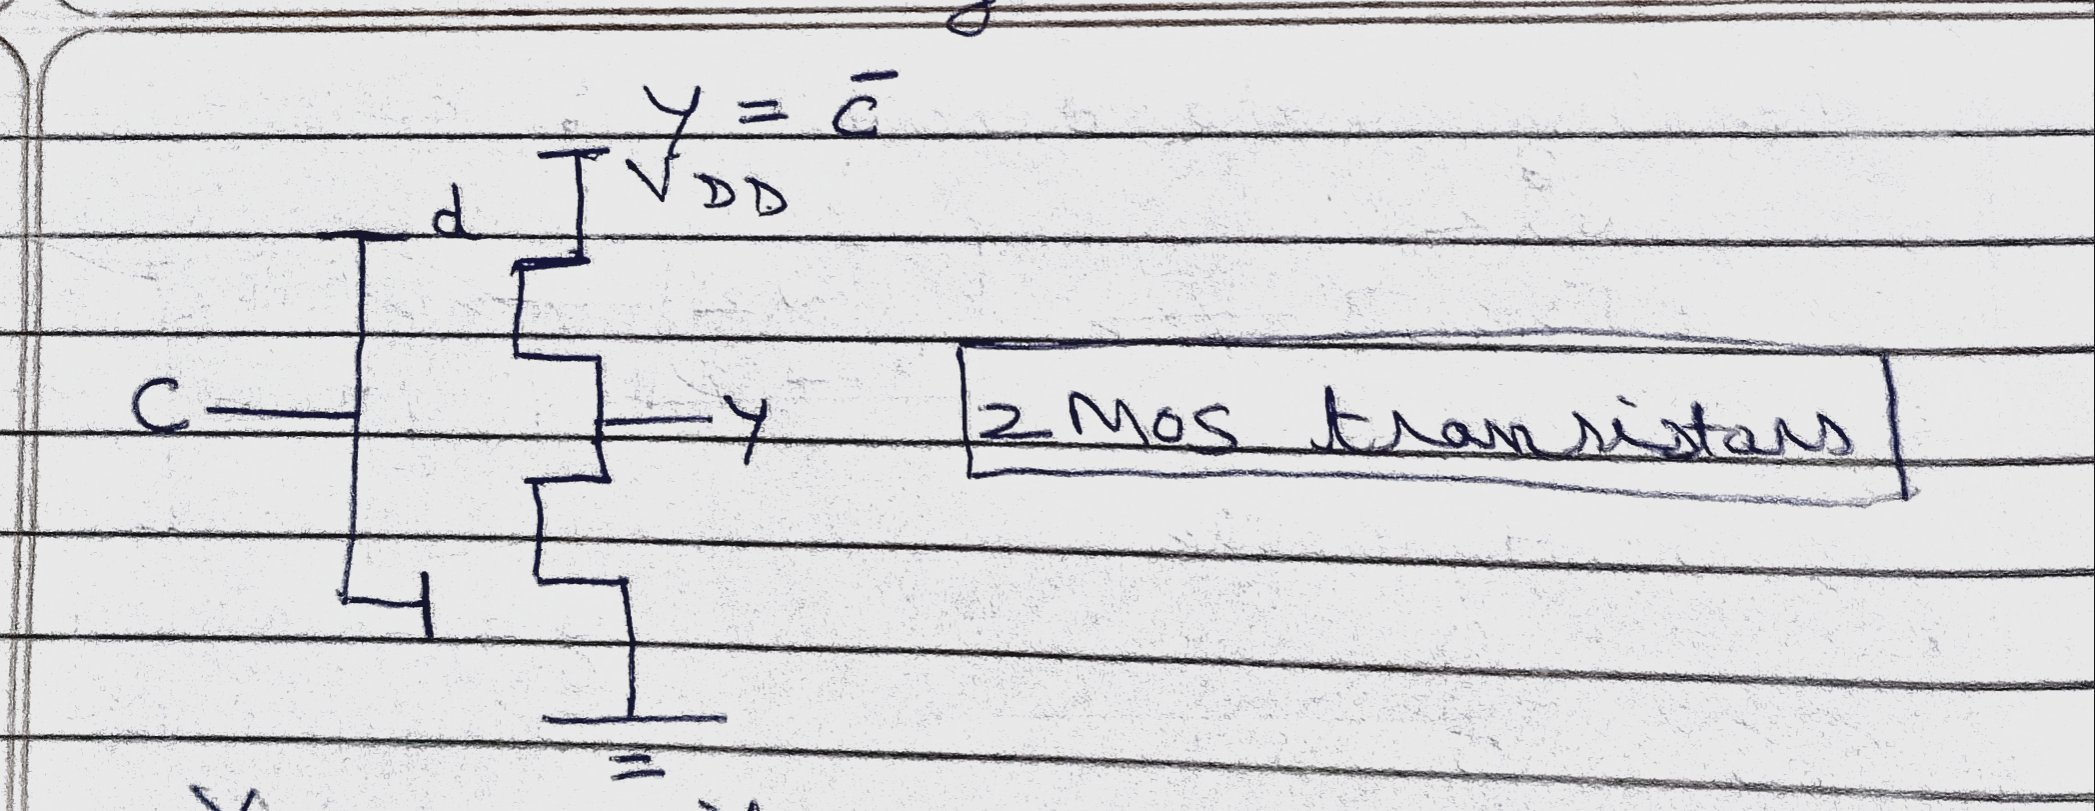 Y = C̅
VDD
d
C
Y
2 MOS transistors